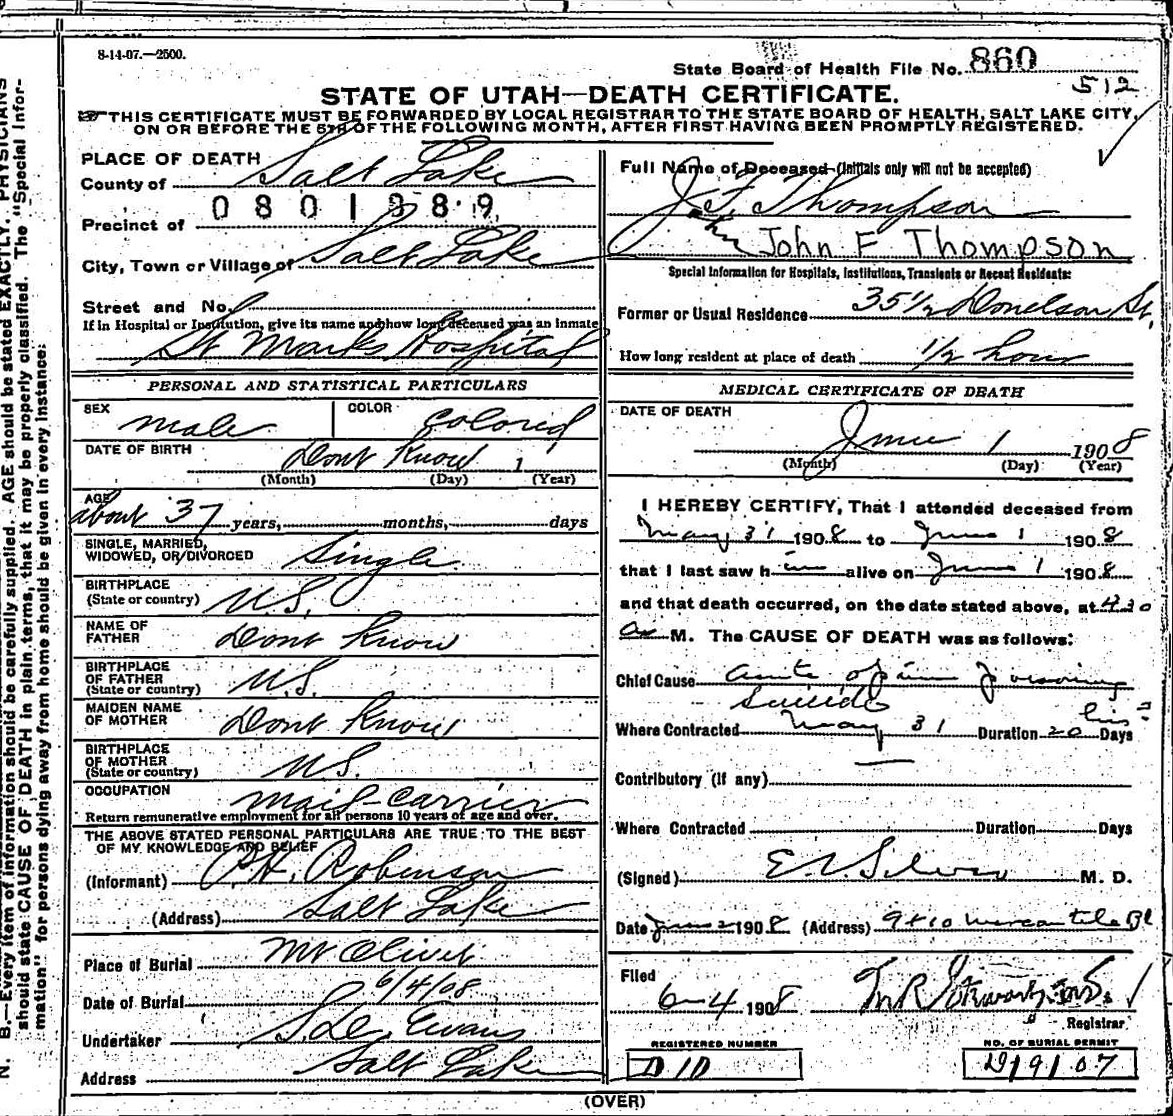 8-14-07.—2500.
State Board of Health File No. 860
512
STATE OF UTAH—DEATH CERTIFICATE.
THIS CERTIFICATE MUST BE FORWARDED BY LOCAL REGISTRAR TO THE STATE BOARD OF HEALTH, SALT LAKE CITY,
ON OR BEFORE THE 5TH OF THE FOLLOWING MONTH, AFTER FIRST HAVING BEEN PROMPTLY REGISTERED.
PLACE OF DEATH
County of Salt Lake
Precinct of
City, Town or Village of Salt Lake
Street and No.
If in Hospital or Institution, give its name and how long deceased was an inmate
St Marks Hospital
PERSONAL AND STATISTICAL PARTICULARS
SEX male COLOR colored
DATE OF BIRTH Dont Know 1
(Month) (Day) (Year)
AGE about 37 years, months, days
SINGLE, MARRIED,
WIDOWED, OR DIVORCED Single
BIRTHPLACE
(State or country) U.S.
NAME OF
FATHER Dont Know
BIRTHPLACE
OF FATHER
(State or country) U.S.
MAIDEN NAME
OF MOTHER Dont Know
BIRTHPLACE
OF MOTHER
(State or country) U.S.
OCCUPATION mail-carrier
Return remunerative employment for all persons 10 years of age and over.
THE ABOVE STATED PERSONAL PARTICULARS ARE TRUE TO THE BEST
OF MY KNOWLEDGE AND BELIEF
(Informant) P.H. Robinson
(Address) Salt Lake
Place of Burial Mt Olivet
Date of Burial 6/4/08
Undertaker S.D. Evans
Address Salt Lake
Full Name of Deceased (initials only will not be accepted)
J. F. Thompson
John John F Thompson
Special Information for Hospitals, Institutions, Transients or Recent Residents:
Former or Usual Residence 35 1/2 Donelson St.
How long resident at place of death 1/2 hour
MEDICAL CERTIFICATE OF DEATH
DATE OF DEATH
June 1 1908
(Month) (Day) (Year)
I HEREBY CERTIFY, That I attended deceased from
May 31 1908 to June 1 1908
that I last saw him alive on June 1 1908
and that death occurred, on the date stated above, at 4 30
a M. The CAUSE OF DEATH was as follows:
Chief Cause acute opium poisoning
suicide
Where Contracted May 31 Duration 20 Days
Contributory (if any)
Where Contracted Duration Days
(Signed) E. V. Silver M. D.
Date June 2 1908 (Address) 9 & 10 Mercantile Bl
Filed
6-4 1908
Registrar
REGISTERED NUMBER
D 1D
NO. OF BURIAL PERMIT
D19107
(OVER)
N. B.—Every item of information should be carefully supplied. AGE should be stated EXACTLY. PHYSICIANS
should state CAUSE OF DEATH in plain terms, that it may be properly classified. The "Special Infor-
mation" for persons dying away from home should be given in every instance.